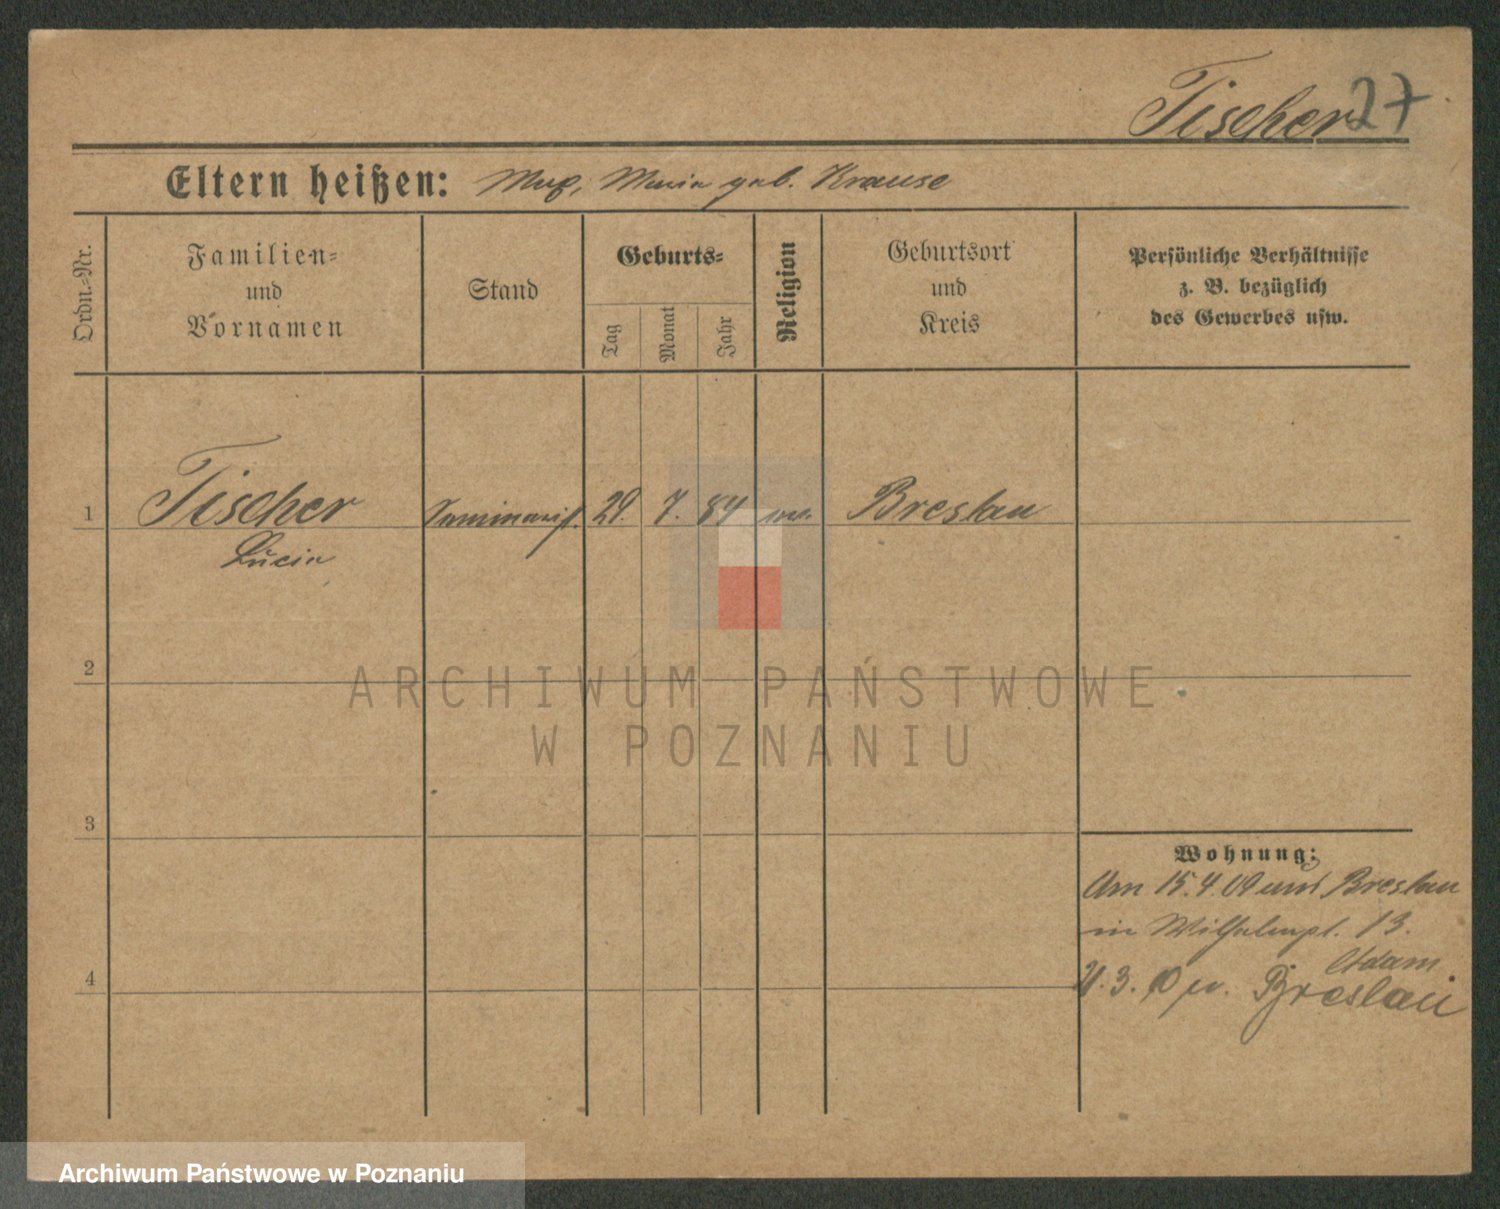 Fischer 27
Eltern heißen: Max, Maria geb. Krause
Ordn.-Nr.
Familien-
und
Vornamen
Stand
Geburts-
Tag
Monat
Jahr
Religion
Geburtsort
und
Kreis
Persönliche Verhältnisse
z. B. bezüglich
des Gewerbes usw.
1 Fischer Seminarist. 29. 7. 84 Breslau
Lucia
2
3
4
Wohnung:
Am 15.4.09 aus Breslau
in Wilhelmpl. 13.
Adam
3. Breslau
ARCHIWUM PAŃSTWOWE
W POZNANIU
Archiwum Państwowe w Poznaniu